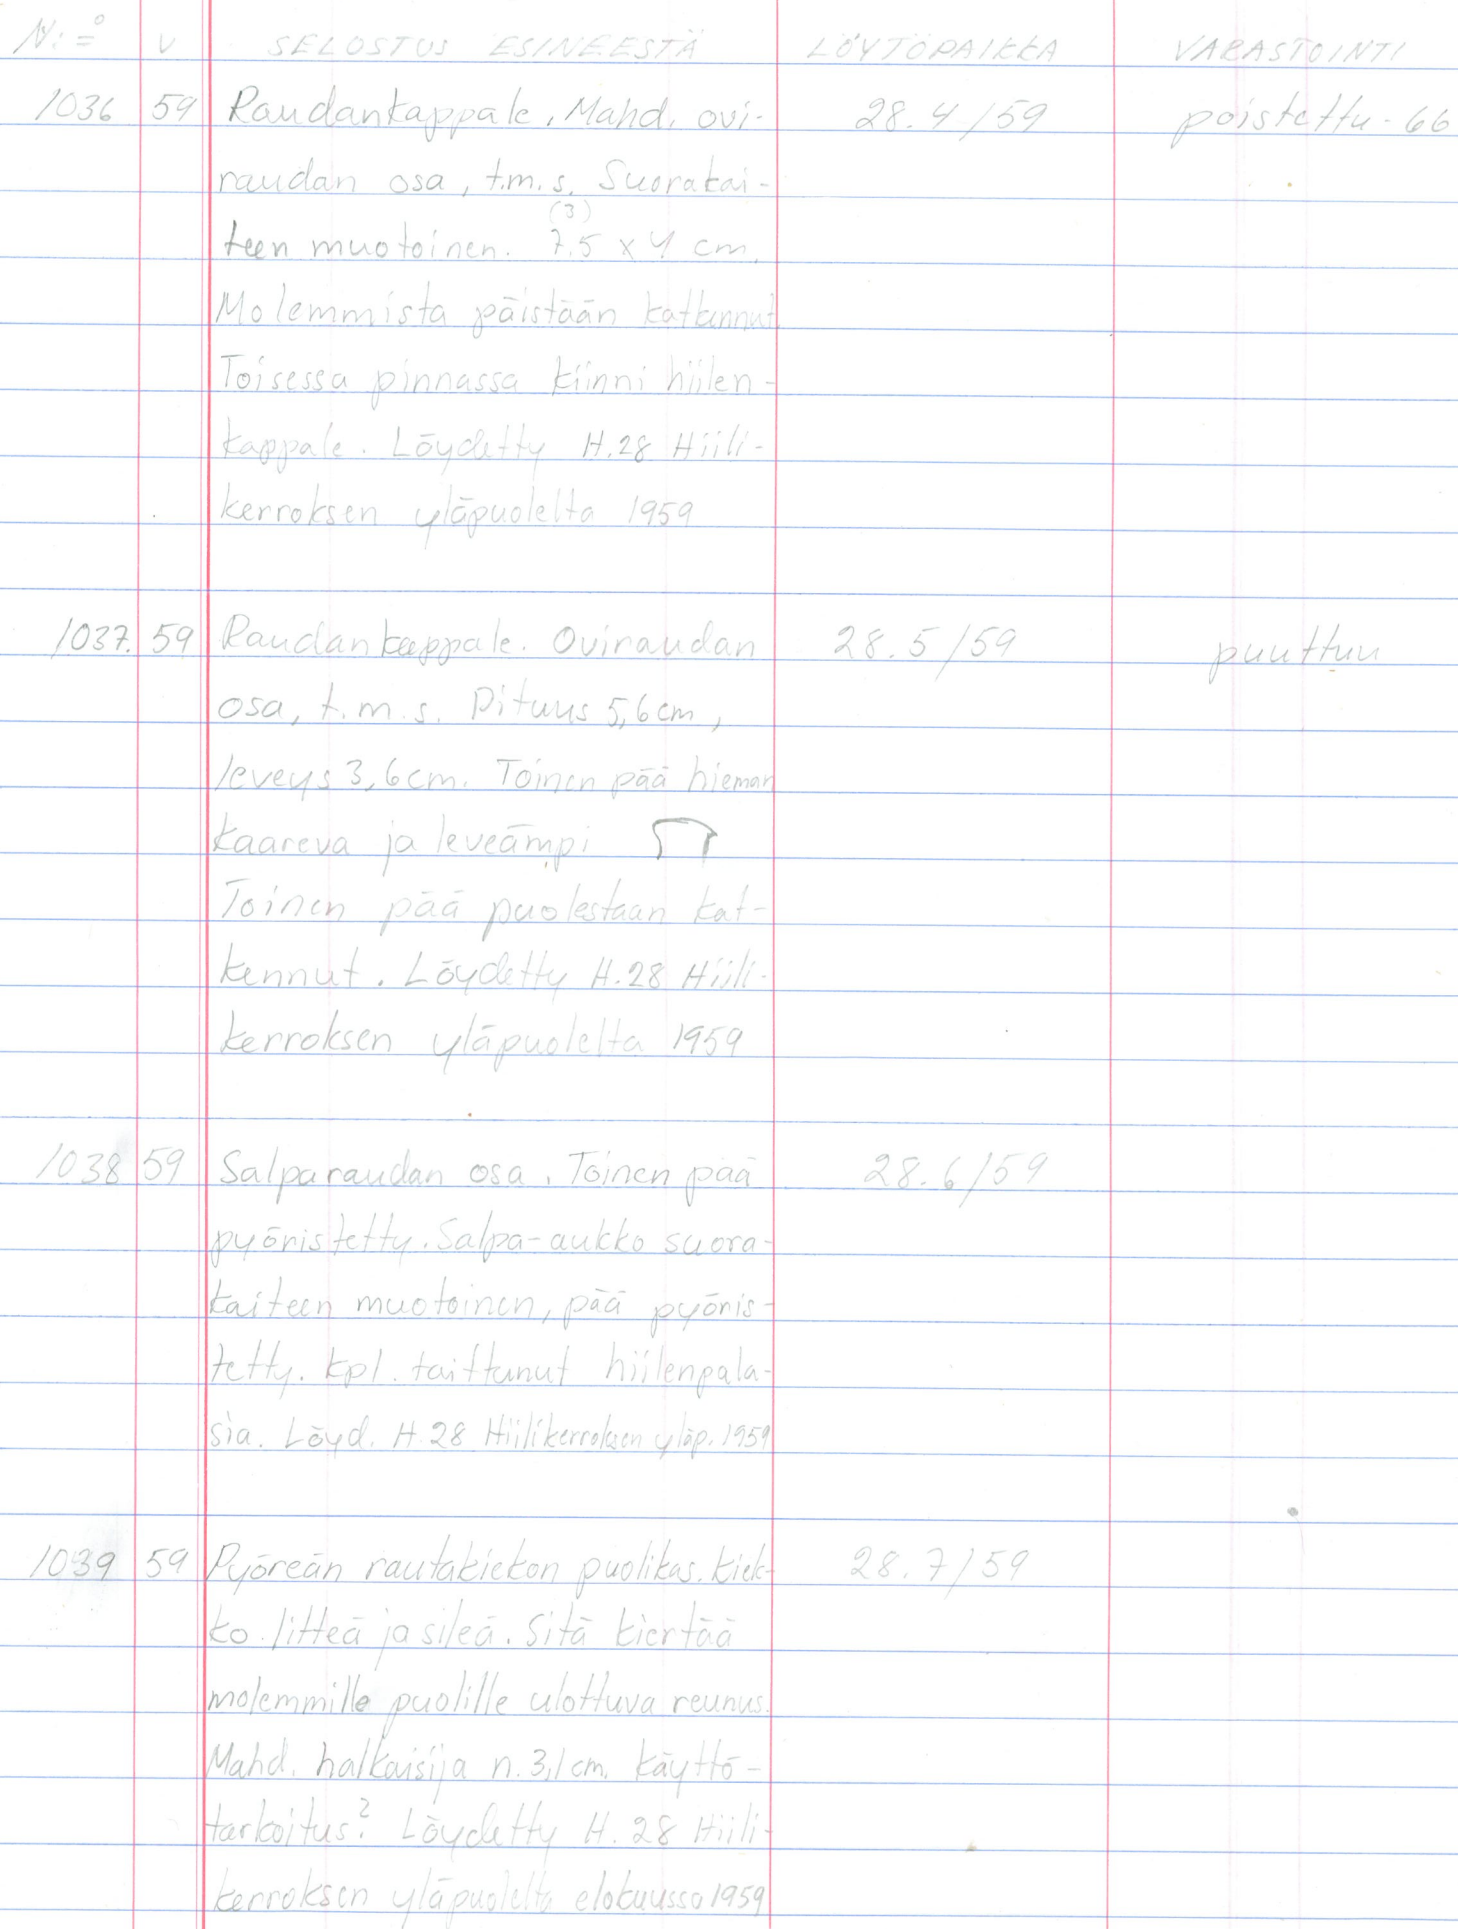 N:o V SELOSTUS ESINEESTÄ LÖYTÖPAIKKA VARASTOINTI
1036 59 Raudankappale. Mahd. ovi- 28.4/59 poistettu - 66
raudan osa, t.m.s. Suorakai-
(3)
teen muotoinen. 7.5 x 4 cm.
Molemmista päistään katkennut
Toisessa pinnassa kiinni hiilen-
kappale. Löydetty H.28 Hiili-
kerroksen yläpuolelta 1959
1037. 59 Raudankappale. Oviraudan 28.5/59 puuttuu
osa, t.m.s. Pituus 5,6 cm,
leveys 3,6 cm. Toinen pää hieman
kaareva ja leveämpi
Toinen pää puolestaan kat-
kennut. Löydetty H.28 Hiili-
kerroksen yläpuolelta 1959
1038 59 Salparaudan osa. Toinen pää 28.6/59
pyöristetty. Salpa-aukko suora-
kaiteen muotoinen, pää pyöris-
tetty. kpl. taittunut hiilenpala-
sia. Löyd. H.28 Hiilikerroksen yläp. 1959
1039 59 Pyöreän rautakiekon puolikas. Kiek- 28.7/59
ko litteä ja sileä. Sitä kiertää
molemmille puolille ulottuva reunus.
Mahd. halkaisija n. 3,1 cm. Käyttö-
tarkoitus? Löydetty H. 28 Hiili-
kerroksen yläpuolelta elokuussa 1959